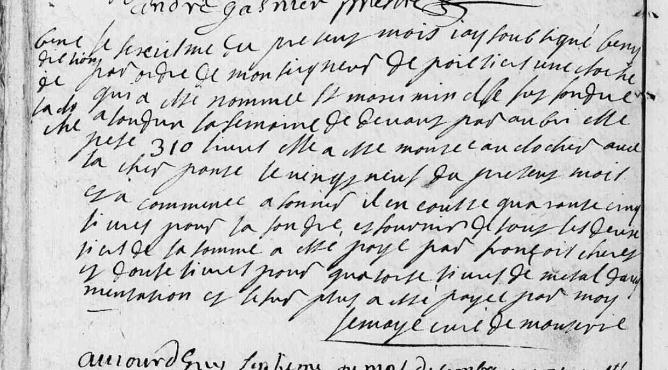 andré gasnier prestre
bene
diction
de
la clo
che
le sixiesme du present mois iay soubsigné beny
par ordre de monseigneur de poictiers une cloche
qui a esté nommee St maximin elle fut fondue
a loudun la semaine de devant par aubri elle
pese 310 livres elle a esté montee au clocher avec
la cher pante le vingt neuf du present mois
et a commencé a sonner il en couste quarante cinq
livres pour la fondre et fournir de tout les deux
tiers de la somme a esté payé par françois
et douse livres pour quatorse livres de metal daug
mentation et le sur plus a esté payee par moy
curé de
auiourdhuy